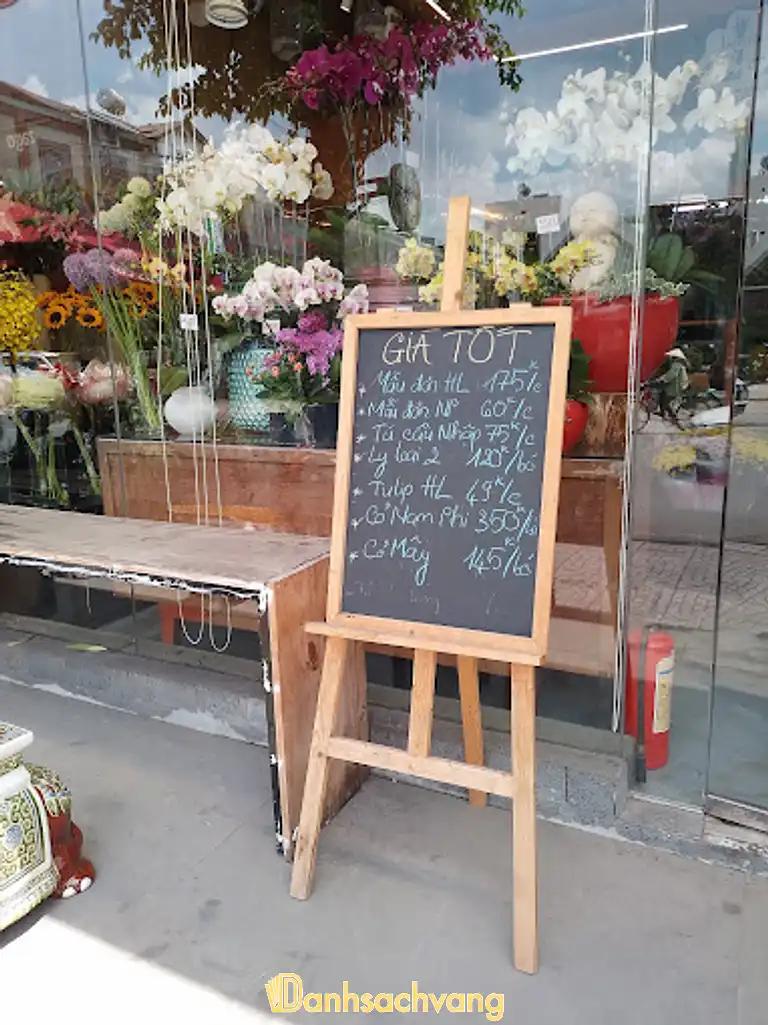 GIÁ TỐT
* Mẫu đơn HL 175k/c
* Mẫu đơn NP 60k/c
* Tú cầu Nhập 75k/c
* Ly loại 2 120k/bó
* Tulip HL 49k/c
* Cỏ Nam Phi 350k/bó
* Cỏ Mây 145k/bó
Danhsachvang